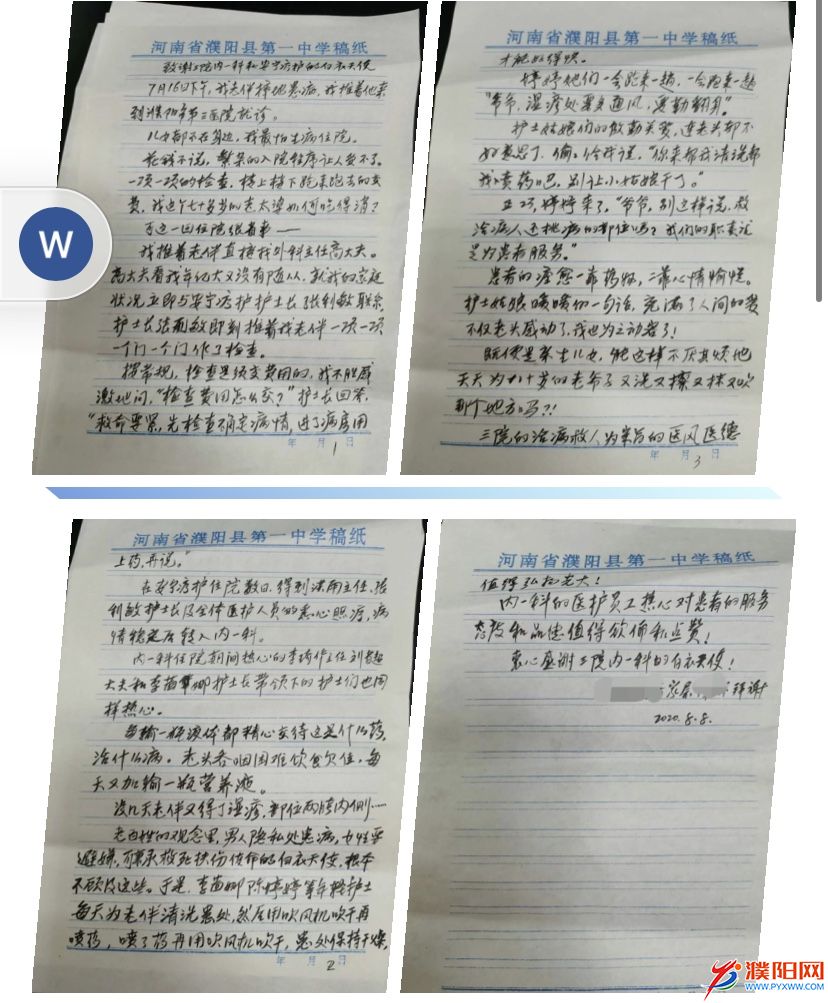 河南省濮阳县第一中学稿纸
致谢三院内一科和安宁疗护的白衣天使
7月16日下午,我老伴掃地患病,我推着他来
到濮阳市第三医院就诊。
儿女都不在身边,我最怕生病住院。
花钱不说,繁杂的入院程序让人受不了。
一项一项的检查,楼上楼下跑来跑去的交
费,我这个七十多岁的老太婆如何吃得消?
可这一回住院很省事——
我推着老伴直接找外科主任高大夫。
高大夫看我年纪大又没有随从,就我的家庭
状况立即与安宁疗护护士长张利敏联系,
护士长张利敏即刻推着我老伴一项一项
一个门一个门作了检查。
按常规,检查是须交费用的,我不胜感
激地问,“检查费用怎么交?”护士长回答,
“救命要紧,先检查确定病情,进了病房用
年 月 日
1
W
河南省濮阳县第一中学稿纸
上药,再说。”
在安宁疗护住院数日,得到 主任、张
利敏护士长及全体医护人员的悉心照疗,病
情稳定后转入内一科。
内一科住院期间热心的李 主任刘 超
大夫和李苗娜护士长带领下的护士们也同
样热心。
每输一瓶液体都精心交待这是什么药
治什么病。老头吞咽困难饮食欠佳,每
天又加输一瓶营养液。
没几天老伴又得了湿疹,部位两胯内侧……
老百姓的观念里,男人隐私处患病,女性要
避嫌,可秉承救死扶伤使命的白衣天使,根本
不顾及这些。于是,李苗娜陈婷婷等年轻护士
每天为老伴清洗患处,然后用吹风机吹干再
喷药,喷了药再用吹风机吹干,患处保持干燥,
年 月 日
2
河南省濮阳县第一中学稿纸
才能好得快。
婷婷她们一会跑来一趟,一会跑来一趟
“爷爷,湿疹处要多通风,要勤翻身”。
护士姑娘们的殷勤关爱,连老头都不
好意思了,偷偷给我说,“你来帮我清洗帮
我喷药吧,别让小姑娘干了。”
正巧,婷婷来了,“爷爷,别这样说,救
治病人还挑病的部位吗?我们的职责就
是为患者服务。”
患者的痊愈一靠药物,二靠心情愉悦。
护士姑娘暖暖的一句话,充满了人间的爱
不仅老头感动了,我也为之动容了!
既便是亲生儿女,能这样不厌其烦地
天天为八十岁的老爷子又洗又擦又抹又吹
那个地方吗?!
三院的治病救人为宗旨的医风医德
年 月 日
3
河南省濮阳县第一中学稿纸
值得弘扬光大!
内一科的医护员工热心对患者的服务
态度和品德值得钦佩和点赞!
衷心感谢三院内一科的白衣天使!
家属 拜谢
2020.8.8.
濮阳网
WWW.PYXWW.COM